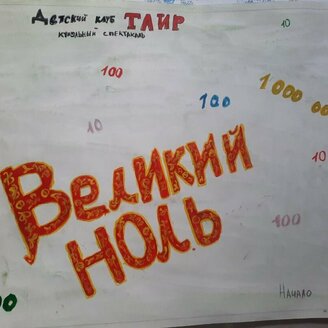 Детский клуб ТАИР
кукольный спектакль
10
100
1000 00
100
10
Великий
10
ноль
100
Начало
00